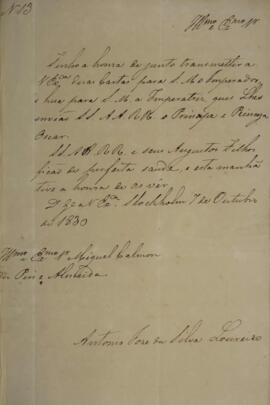 N 13
Illmo e Exmo Sr
Tenho a honra de junto transmittir a
V Exa duas Cartas para S. M. o Imperador,
e hua para S. M. a Imperatriz, que Lhes
enviaõ SS. A. A. R. R. o Principe e Princeza
Oscar.
SS. A. R. R. e seus Augustos Filhos
ficaõ de perfeita saude, e esta manhã
tive a honra de os vêr.
D G a V Exa Stockholm 7 de Outubro
de 1830
Illmo e Exmo Sr Miguel Calmon
du Pin e Almeida
Antonio Jose da Silva Loureiro